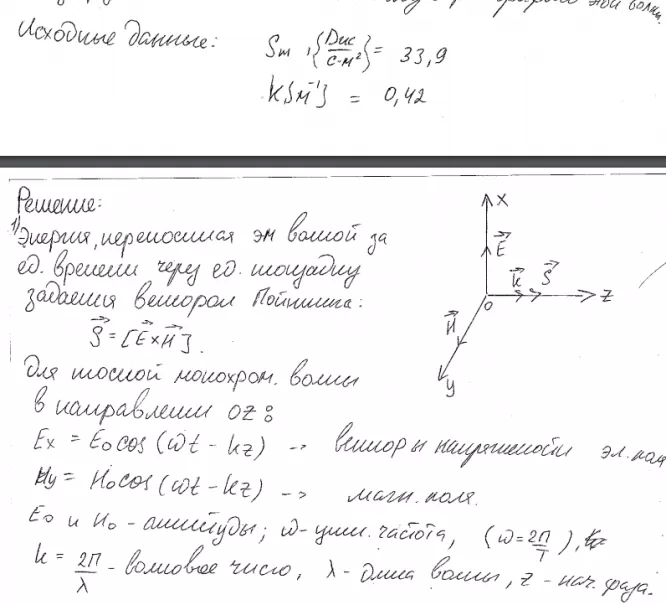 этой волны.
Исходные данные:
Sm, {Дис/с·м²} = 33,9
k{м⁻¹} = 0,42
Решение:
1) Энергия, переносимая эм волной за
ед. времени через ед. площадку
задаётся вектором Пойнтинга:
S⃗ = [E⃗ × H⃗].
Для плоской монохром. волны
в направлении OZ:
Ex = E₀cos(ωt - kz) -> векторы напряжености эл. поля
Hy = H₀cos(ωt - kz) -> магн. поля.
E₀ и H₀ - амплитуды; ω - цикл. частота, (ω = 2π/T),
k = 2π/λ - волновое число, λ - длина волны, z - нач. фаза.
X
E⃗
k⃗ S⃗
O Z
H⃗
Y